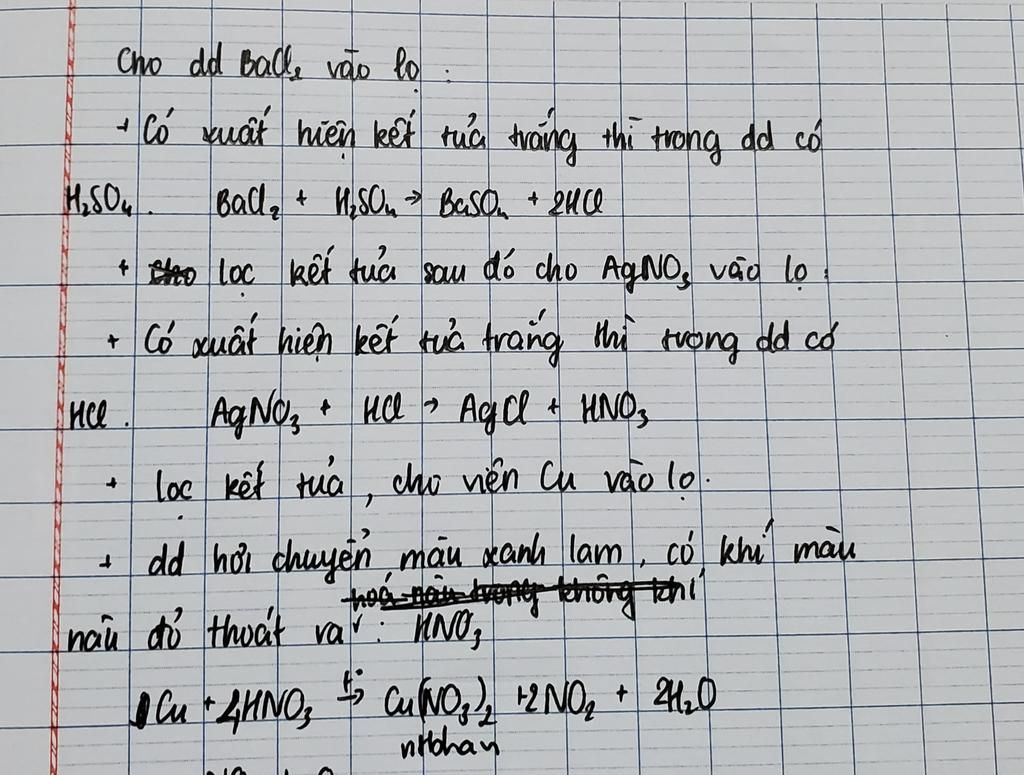 Cho dd BaCl₂ vào lọ :
+ Có xuất hiện kết tủa trắng thì trong dd có
H₂SO₄. BaCl₂ + H₂SO₄ → BaSO₄ + 2HCl
+ lọc kết tủa sau đó cho AgNO₃ vào lọ :
+ Có xuất hiện kết tủa trắng thì trong dd có
HCl. AgNO₃ + HCl → AgCl + HNO₃
+ lọc kết tủa, cho viên Cu vào lọ.
+ dd hơi chuyển màu xanh lam, có khí màu
hoá nâu trong không khí
nâu đỏ thoát ra : HNO₃
Cu + 4HNO₃ t°→ Cu(NO₃)₂ + 2NO₂ + 2H₂O